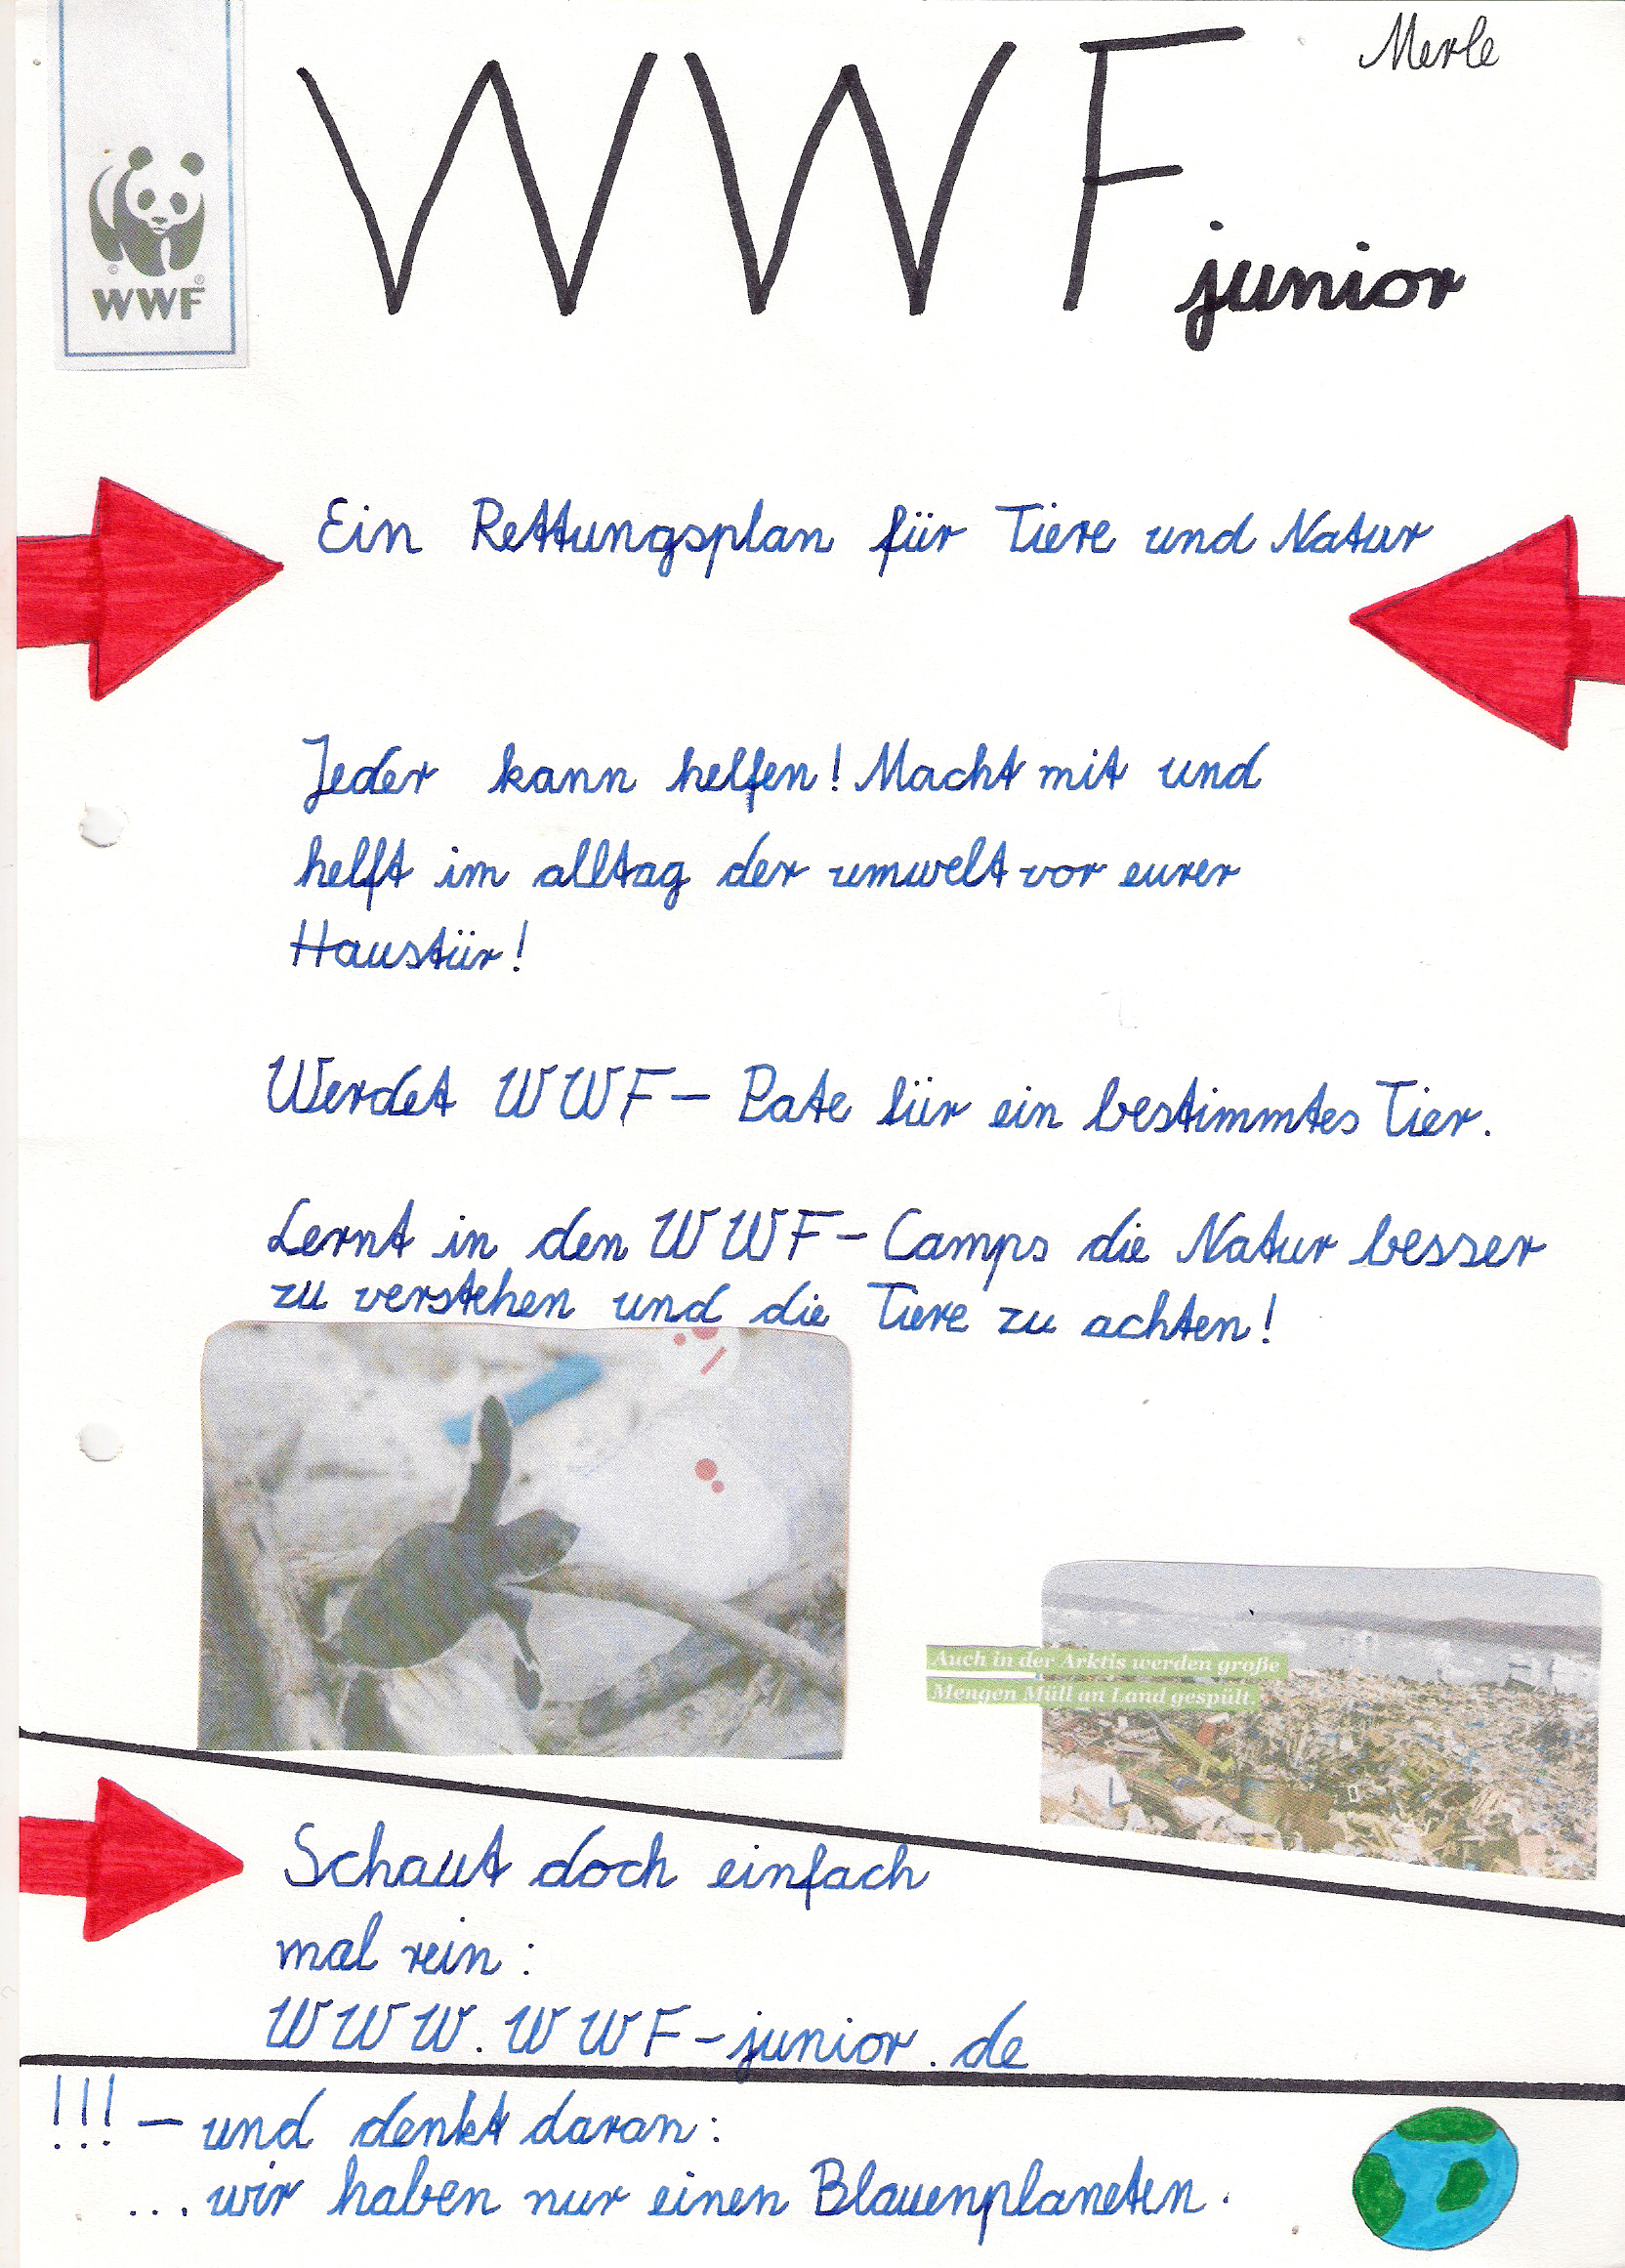 Merle
WWF
junior
© WWF ®
Ein Rettungsplan für Tiere und Natur
Jeder kann helfen! Macht mit und
helft im alltag der umwelt vor eurer
Haustür!
Werdet WWF- Pate für ein bestimmtes Tier.
Lernt in den WWF-Camps die Natur besser
zu verstehen und die Tiere zu achten!
Auch in der Arktis werden große
Mengen Müll an Land gespült.
Schaut doch einfach
mal rein:
WWW.WWF-junior.de
!!! - und denkt daran:
... wir haben nur einen Blauenplaneten.